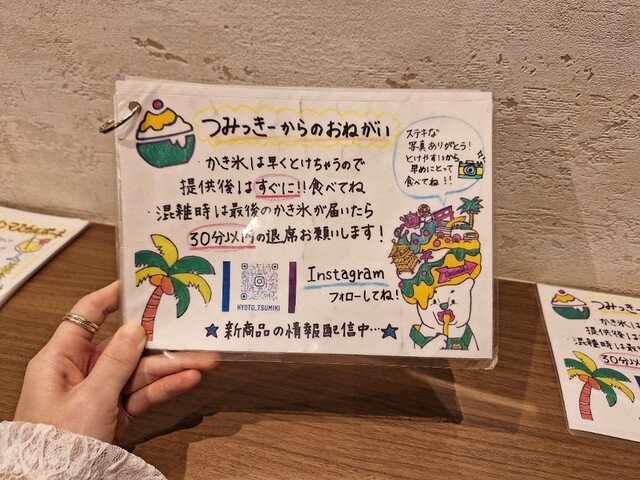 つみっきーからのおねがい
かき氷は早くとけちゃうので
提供後はすぐに!!食べてね
混雑時は最後のかき氷が届いたら
30分以内の退席お願いします!
ステキな
写真ありがとう!
とけやすいから
早めにとって
食べてね!!
KYOTO_TSUMIKI
Instagram
フォローしてね!
★新商品の情報配信中…★
つみっき
かき氷は
提供後
混雑時は最
30分